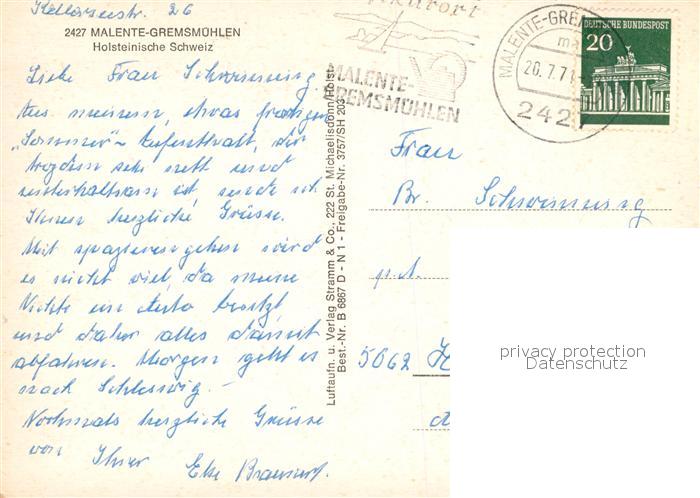 Kellerseestr. 26
2427 MALENTE-GREMSMÜHLEN
Holsteinische Schweiz
Liebe Frau Schwemming.
Aus meinem, etwas
"Sommer"-Aufenthalt, der
trozdem sehr nett und
unterhaltsam ist, sende ich
Ihnen herzliche Grüsse.
Mit spazierengehen wird
es nicht viel, da meine
Nichte ein Auto besitzt,
und daher alles damit
abfahren. Morgen geht es
nach Schleswig. -
Nochmals herzliche Grüsse
von Ihrer
Else
Luftaufn. u. Verlag Stramm & Co., 222 St. Michaelisdonn/Holst.
Best.-Nr. B 6867 D - N 1 - Freigabe-Nr. 3757/SH 203
MALENTE-
GREMSMÜHLEN
MALENTE-GRE
20.7.71
242
DEUTSCHE BUNDESPOST
20
Frau
Br. Schwemming
p.A.
5062
privacy protection
Datenschutz